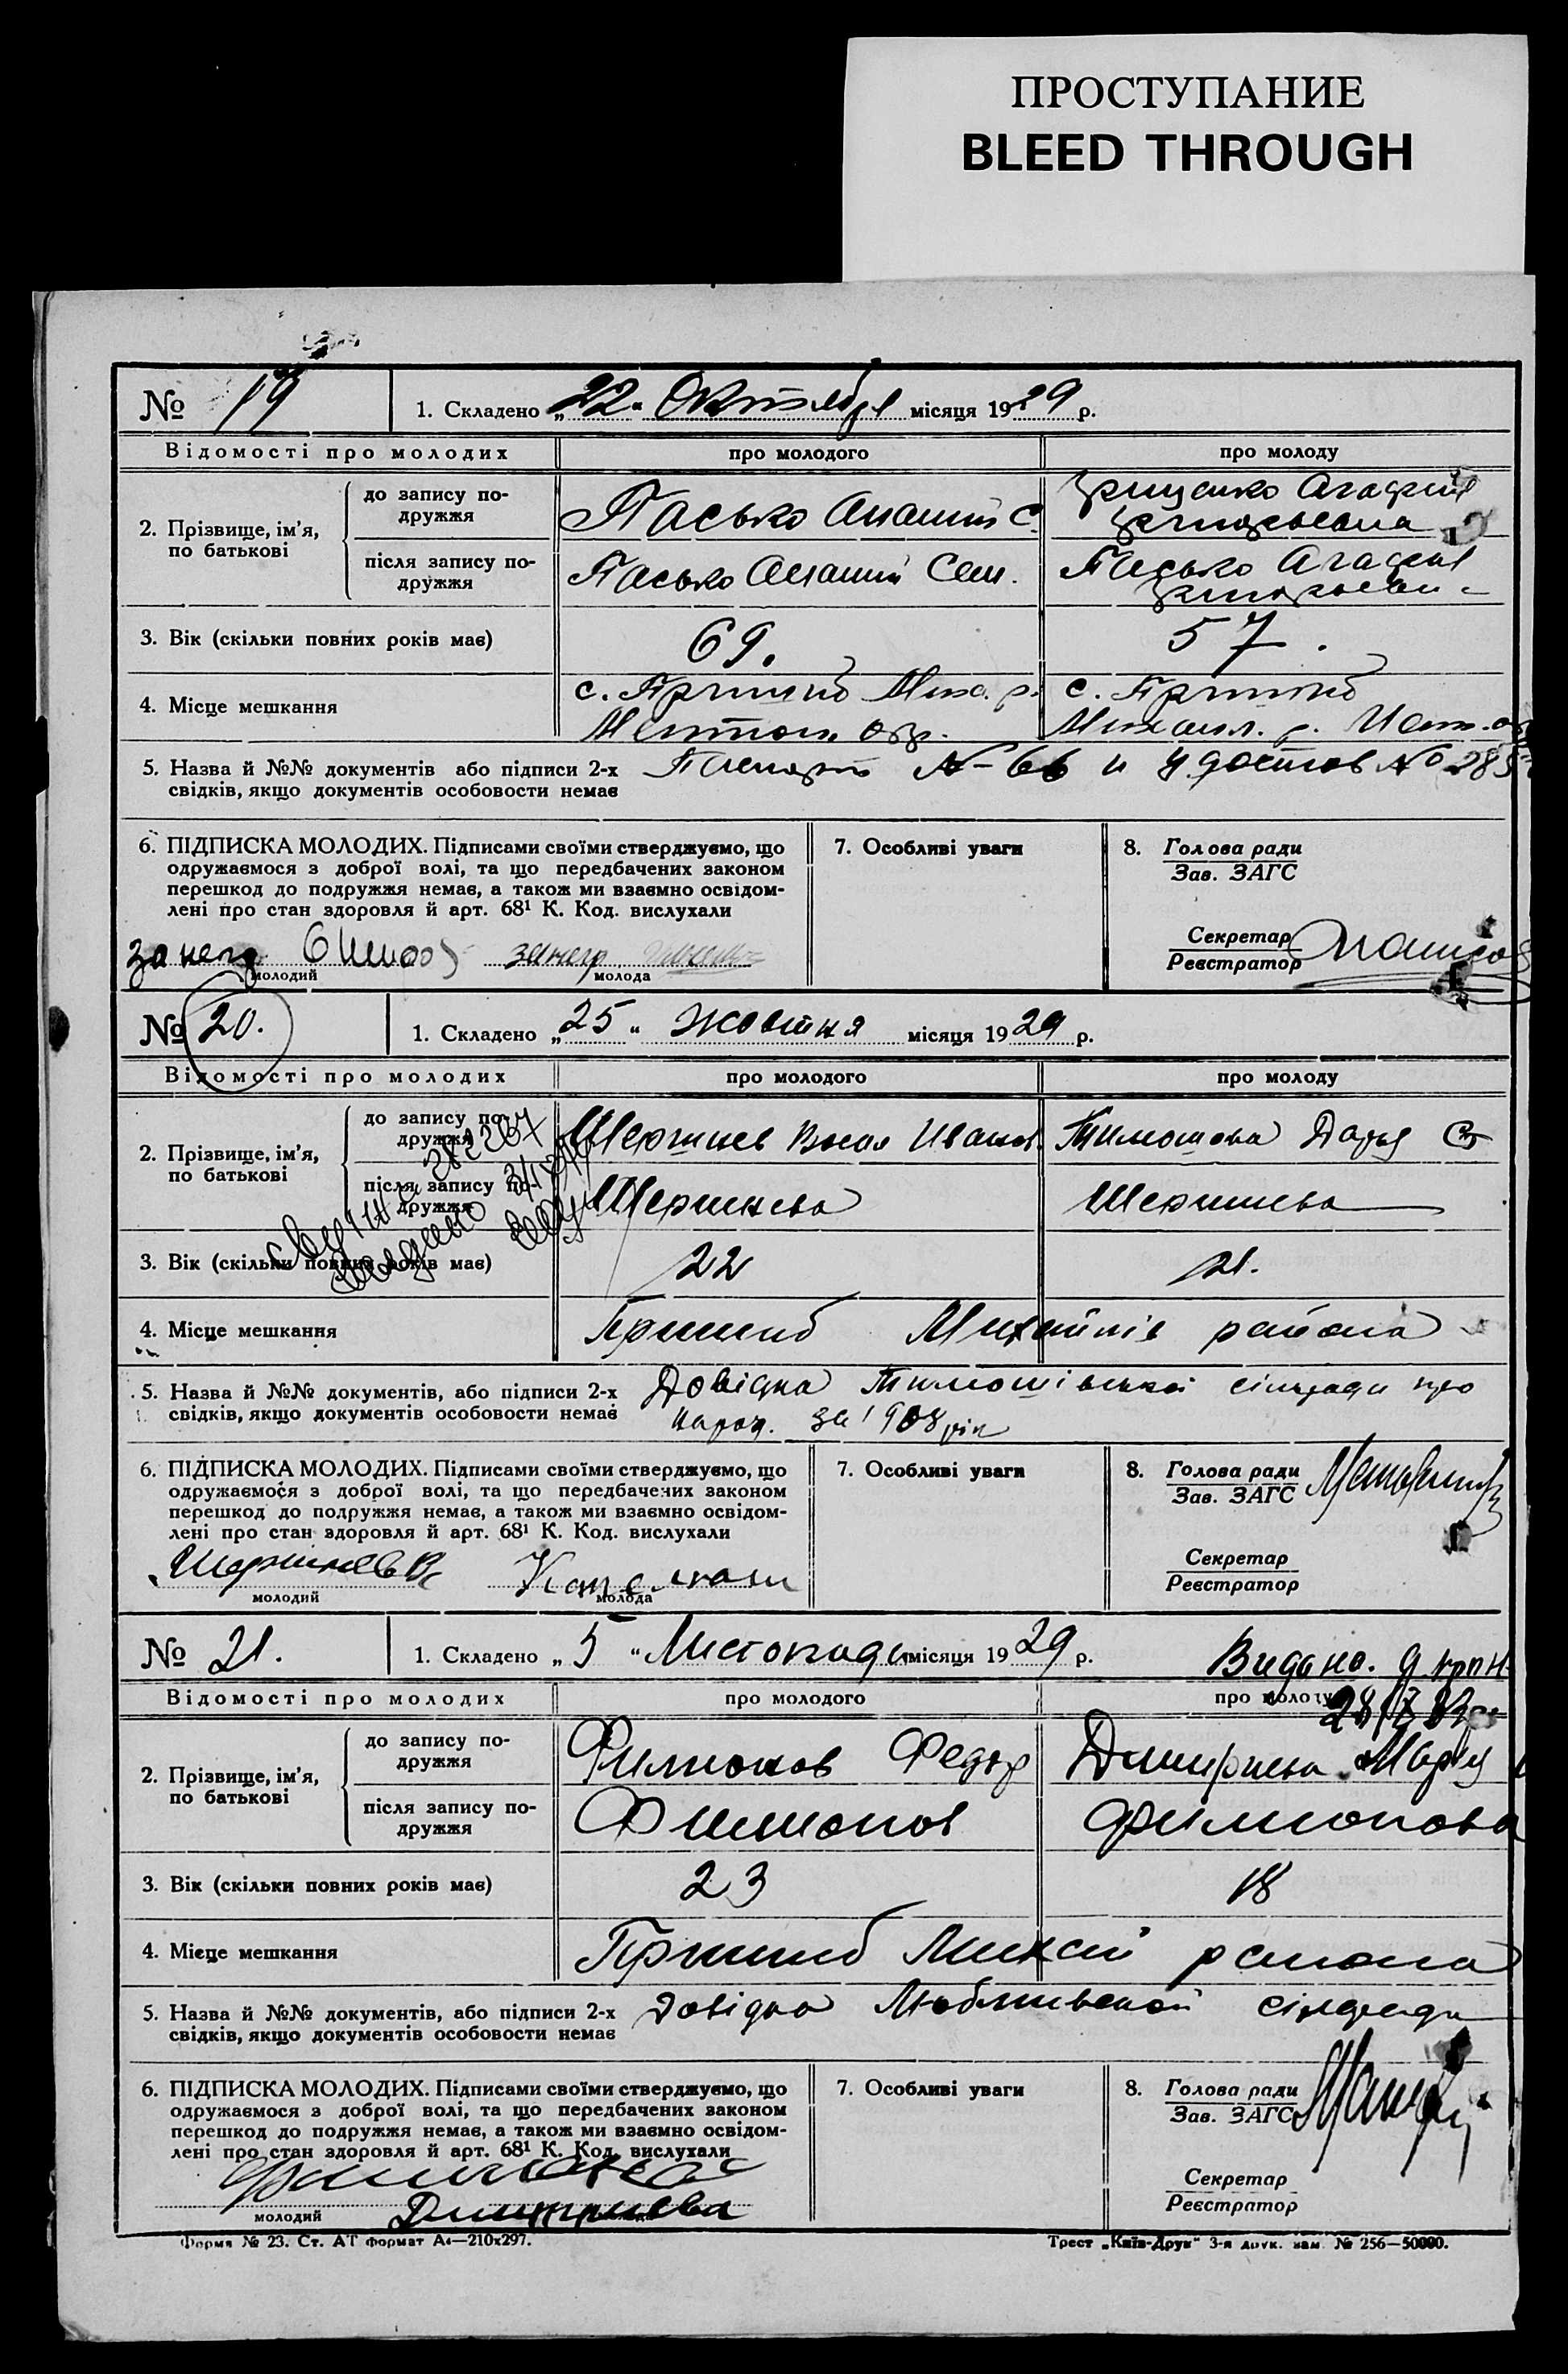 ПРОСТУПАНИЕ
BLEED THROUGH
№ 19
1. Складено „22“ Октября місяця 1929 р.
Відомості про молодих
про молодого
про молоду
2. Прізвище, ім'я, по батькові
до запису подружжя
Пасько Ананий С.
Грищенко Агафия
Григорьевна
після запису подружжя
Пасько Ананий Сем.
Пасько Агафия
3. Вік (скільки повних років має)
69.
57.
4. Місце мешкання
с. Пришиб Мих. р.
обр.
с. Пришиб
Михайл. р.
5. Назва й №№ документів або підписи 2-х
свідків, якщо документів особовости немає
Паспорт № 66 и удостов №
6. ПІДПИСКА МОЛОДИХ. Підписами своїми стверджуємо, що
одружаємося з доброї волі, та що передбачених законом
перешкод до подружжя немає, а також ми взаємно освідом-
лені про стан здоровля й арт. 68¹ К. Код. вислухали
за него
занего
молодий
молода
7. Особливі уваги
8. Голова ради
Зав. ЗАГС
Секретар
Реєстратор
№ 20.
1. Складено „25“ Жовтня місяця 1929 р.
Відомості про молодих
про молодого
про молоду
2. Прізвище, ім'я, по батькові
до запису подружжя
Шершнев Васил Иванов.
Тимошова Дарья
після запису подружжя
Шершнева
Шершнева
3. Вік (скільки повних років має)
22
21.
4. Місце мешкання
Пришиб Михайлів района
5. Назва й №№ документів, або підписи 2-х
свідків, якщо документів особовости немає
Довідка Тимошівської сільради про
народ. за 1908 рік
6. ПІДПИСКА МОЛОДИХ. Підписами своїми стверджуємо, що
одружаємося з доброї волі, та що передбачених законом
перешкод до подружжя немає, а також ми взаємно освідом-
лені про стан здоровля й арт. 68¹ К. Код. вислухали
Шершнев В
молодий
молода
7. Особливі уваги
8. Голова ради
Зав. ЗАГС
Секретар
Реєстратор
№ 21.
1. Складено „5“ Листопада місяця 1929 р.
Видано.
Відомості про молодих
про молодого
про молоду
2. Прізвище, ім'я, по батькові
до запису подружжя
Филмонов Федор
Дмитриева Мария
після запису подружжя
Филимонов
Филмонова
3. Вік (скільки повних років має)
23
18
4. Місце мешкання
Пришиб Михай района
5. Назва й №№ документів, або підписи 2-х
свідків, якщо документів особовости немає
Довідка сільради
6. ПІДПИСКА МОЛОДИХ. Підписами своїми стверджуємо, що
одружаємося з доброї волі, та що передбачених законом
перешкод до подружжя немає, а також ми взаємно освідом-
лені про стан здоровля й арт. 68¹ К. Код. вислухали
молодий
Дмитриева
7. Особливі уваги
8. Голова ради
Зав. ЗАГС
Секретар
Реєстратор
Форма № 23. Ст. АТ формат А4—210х297.
Трест „Київ-Друк“ 3-я друк. зам. № 256—50000.